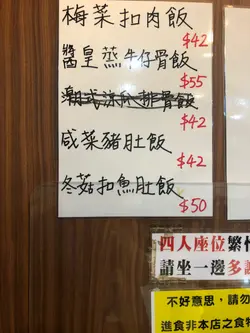 梅菜扣肉飯
$42
醬皇蒸牛仔骨飯
$55
潮式涼瓜排骨飯
$42
咸菜豬肚飯
$42
冬菇扣魚肚飯
$50
四人座位繁忙
請坐一邊多
不好意思，請勿
進食非本店之食物